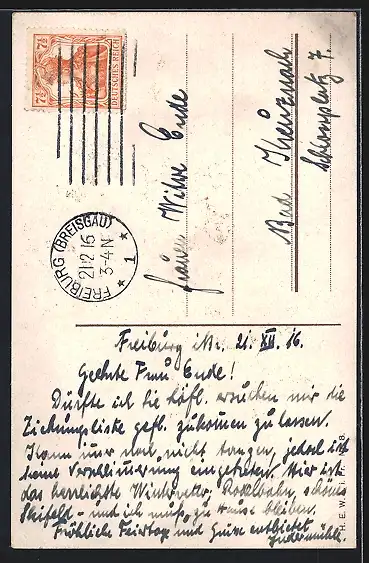 7½
DEUTSCHES REICH
7½
FREIBURG (BREISGAU)
21.12.16
3-4 N
* 1 *
Frau Witwe Ende
Bad Kreuznach
Schlossplatz 7.
Freiburg i/Br. 21. XII. 16.
Geehrte Frau Ende!
Dürfte ich Sie höfl. ersuchen mir die
Ziehungsliste gefl. zukommen zu lassen.
Kann nur noch nicht tanzen, jedoch ist
keine Verschlimmerung eingetreten. Hier ist
das herrlichste Winterwetter, Rodelbahn, schönes
Skifeld – und ich muß zu Hause bleiben.
Fröhliche Feiertage und Gruss entbietet